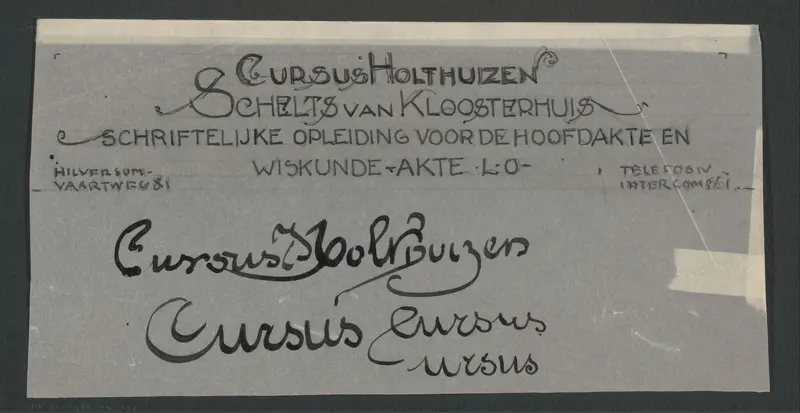 CURSUS HOLTHUIZEN
SCHELTS VAN KLOOSTERHUIS
SCHRIFTELIJKE OPLEIDING VOOR DE HOOFDAKTE EN
WISKUNDE-AKTE L.O-
HILVERSUM-
VAARTWEG 81
TELEFOON
INTERCOMM
Cursus Holthuizen
Cursus Cursus
ursus